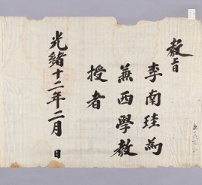 教旨
李南珪為
兼西學教
授者
光緒十二年二月 日